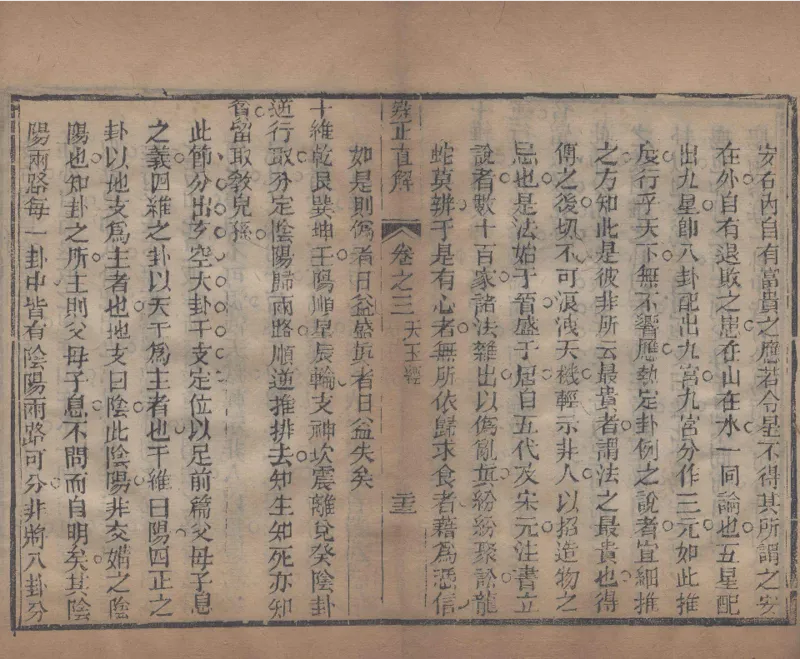 安在內自有富貴之應若令星不得其所謂之安
在外自有退敗之慮在山在水一同論也五星配
出九星卽八卦配出九宮九宮分作三元如此推
展行乎天下無不響應執定卦例之說者宜細推
之方知此是彼非所云最貴者謂法之最貴也得
傳之後切不可泯洩天機輕示非人以招造物之
忌也是法始于晋盛于唐自五代及宋元注書立
說者數十百家諸法雜出以偽亂真紛紛聚訟龍
蛇莫辨于是有心者無所依歸求食者藉為憑信
辨正直解 卷之三 天玉經 二十三
如是則偽者日益盛真者日益失矣
十維乾艮巽坤壬陽順星辰輪支神坎震離兌癸陰卦
逆行取分定陰陽歸兩路順逆推排去知生知死亦知
貧留取敎兒孫
此節分出玄空大卦干支定位以足前篇父母子息
之義四維之卦以天干為主者也干維曰陽四正之
卦以地支為主者也地支曰陰此陰陽非交媾之陰
陽也知卦之所主則父母子息不問而自明矣其陰
陽兩路每一卦中皆有陰陽兩路可分非將八卦分